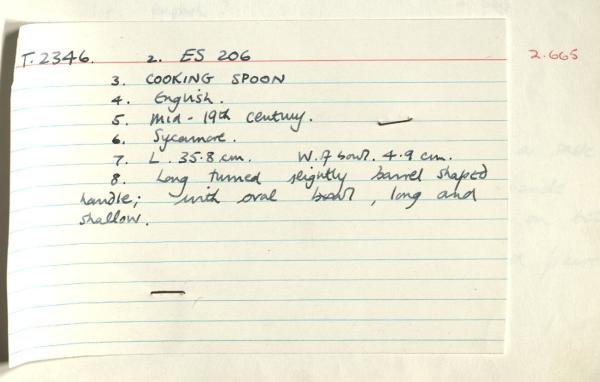 T.2346. 2. ES 206 2.665
3. COOKING SPOON
4. English.
5. Mid-19th Century.
6. Sycamore.
7. L. 35.8 cm. W. of bowl. 4.9 cm.
8. Long turned slightly barrel shaped
handle; with oval bowl, long and
shallow.